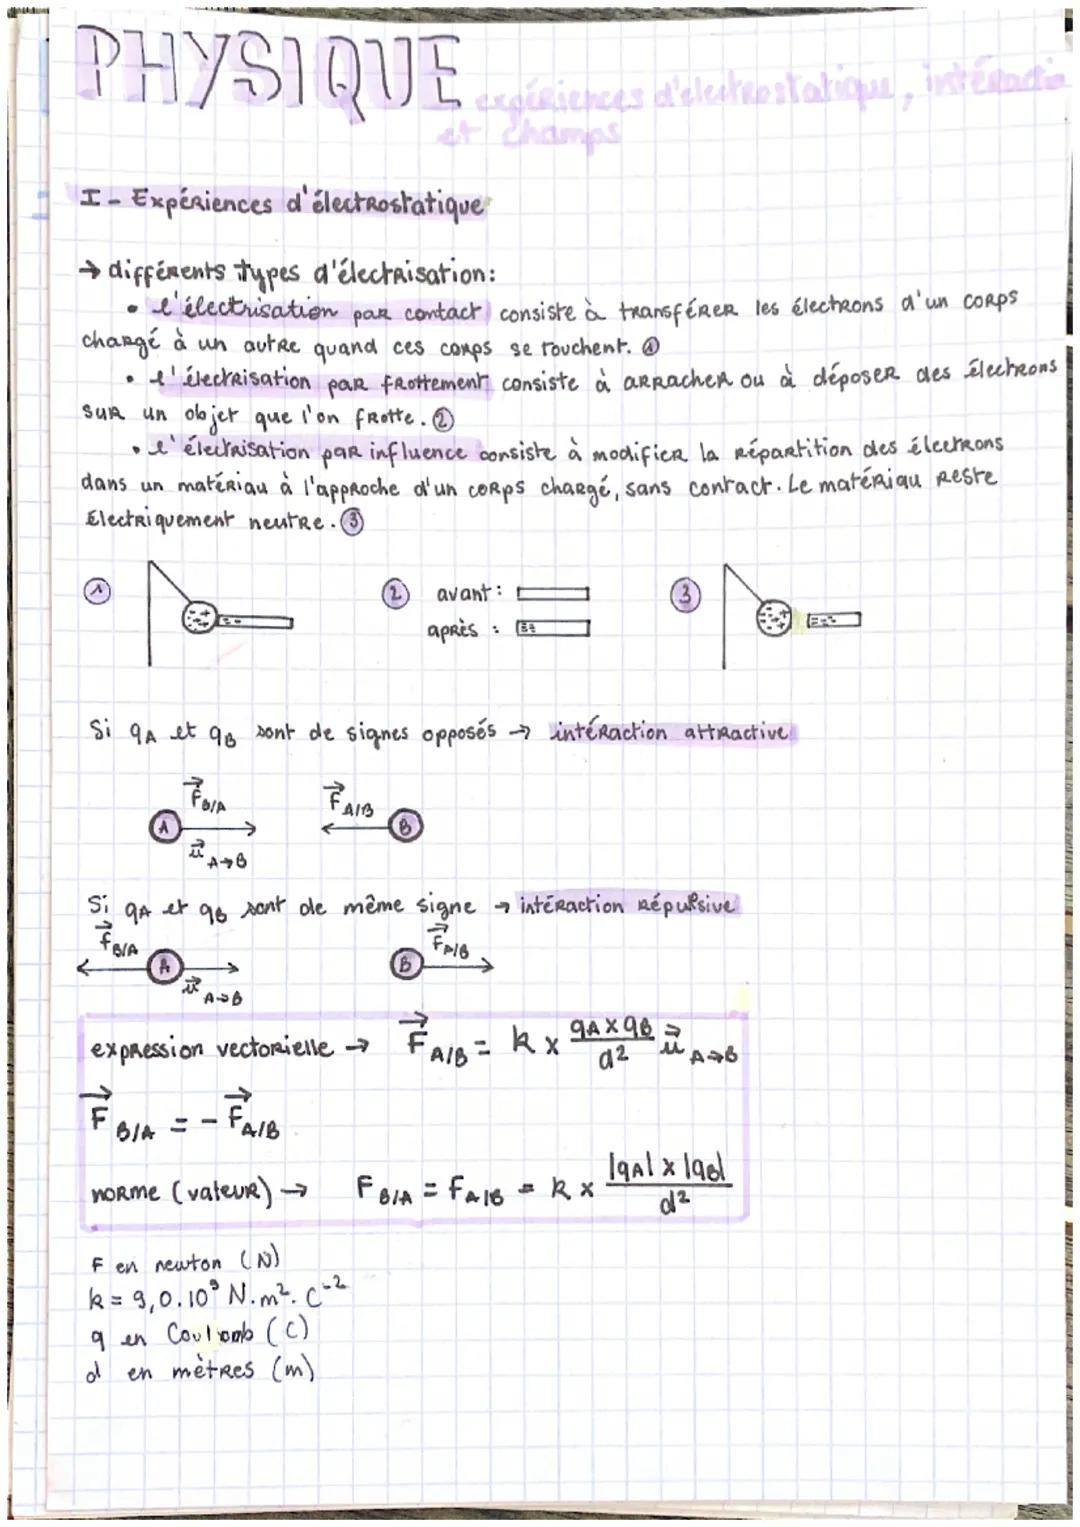 PHYSIQUE
expériences d'électrostatique, intéractio
et champs
I - Expériences d'électrostatique
→ différents types d'électrisation:
• l'électrisation par contact consiste à transférer les électrons d'un corps
chargé à un autre quand ces corps se touchent. ①
• l'électrisation par frottement consiste à arracher ou à déposer des électrons
sur un objet que l'on frotte. ②
• l'électrisation par influence consiste à modifier la répartition des électrons
dans un matériau à l'approche d'un corps chargé, sans contact. Le matériau reste
électriquement neutre. ③
① ② avant: ③
après :
Si qA et qB sont de signes opposés → intéraction attractive
F⃗ B/A F⃗ A/B
A B
u⃗ A→B
Si qA et qB sont de même signe → intéraction répulsive
F⃗ B/A F⃗ A/B
A B
u⃗ A→B
expression vectorielle → F⃗ A/B = k × (qA × qB)/d² u⃗ A→B
F⃗ B/A = - F⃗ A/B
norme (valeur) → F B/A = F A/B = k × (|qA| × |qB|)/d²
F en newton (N)
k = 9,0.10⁹ N.m².C⁻²
q en Coulomb (C)
d en mètres (m)